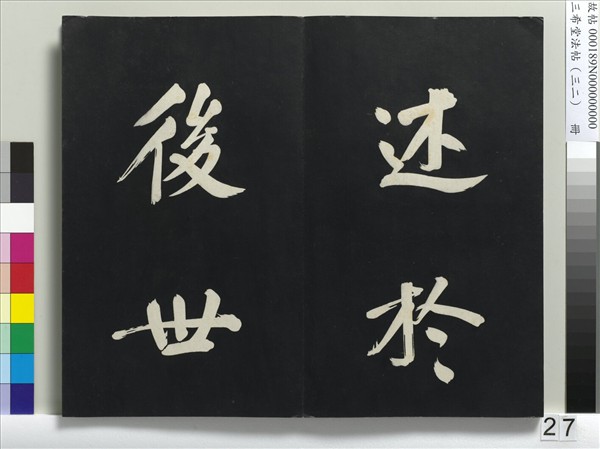 述於
後世
故帖 000189N000000000
三希堂法帖（三二） 冊
27